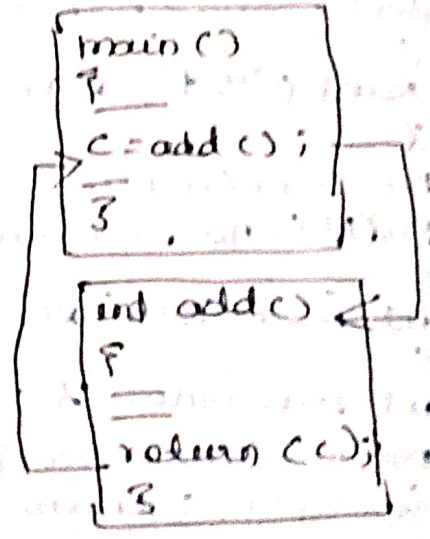 main ()
{
c = add () ;
}
int add ()
{
return (c);
}